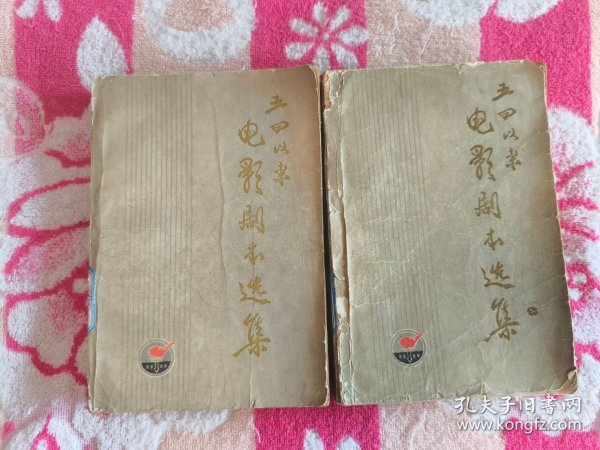 五四以来
电影剧本选集
五四以来
电影剧本选集
孔夫子旧书网
www.kongfz.com